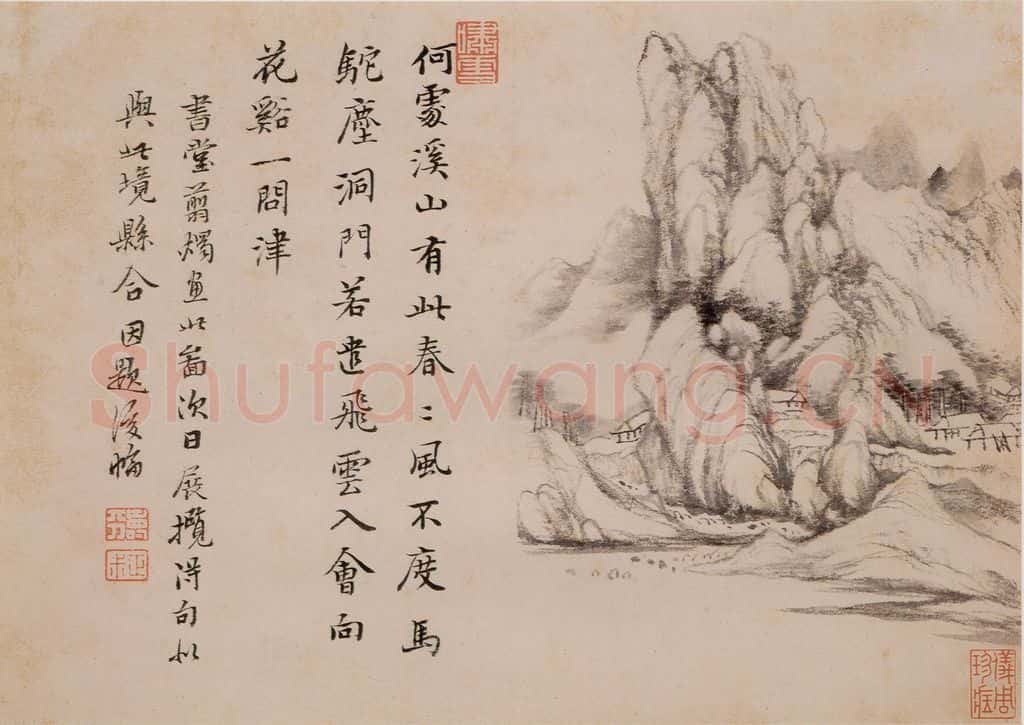 何處溪山有此春〻風不度馬
塵洞門若遣飛雲入會向
花谿一問津
書堂翦燭畫此啚次日展攬得句似
與此境縣合因題後幅
壽平
正叔
儀周珍藏
Shufawang.CN